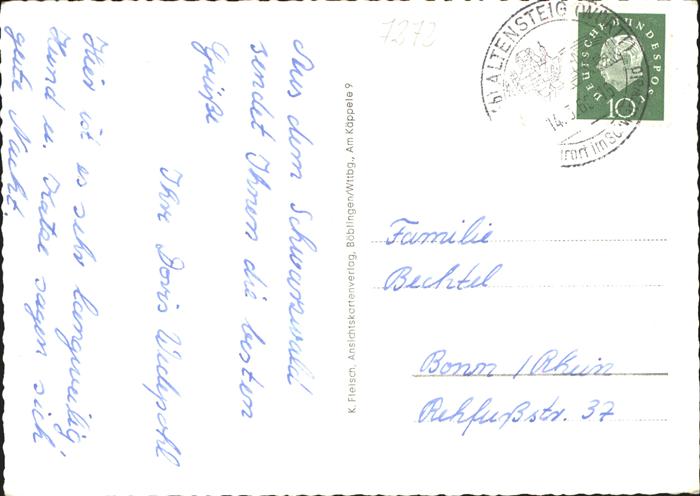 Aus dem Schwarzwald
sendet Ihnen die besten
Grüße
Ihre Doris
Hier ist es sehr langweilig,
Hund u. Katze sagen sich
gute Nacht.
K. Fleisch, Ansichtskartenverlag, Böblingen/Wittbg., Am Käppele 9
7272
ALTENSTEIG (WÜRTT)
14.3.60
DEUTSCHE BUNDESPOST
10
Familie
Bechtel
Bonn/Rhein
Rehfußstr. 37